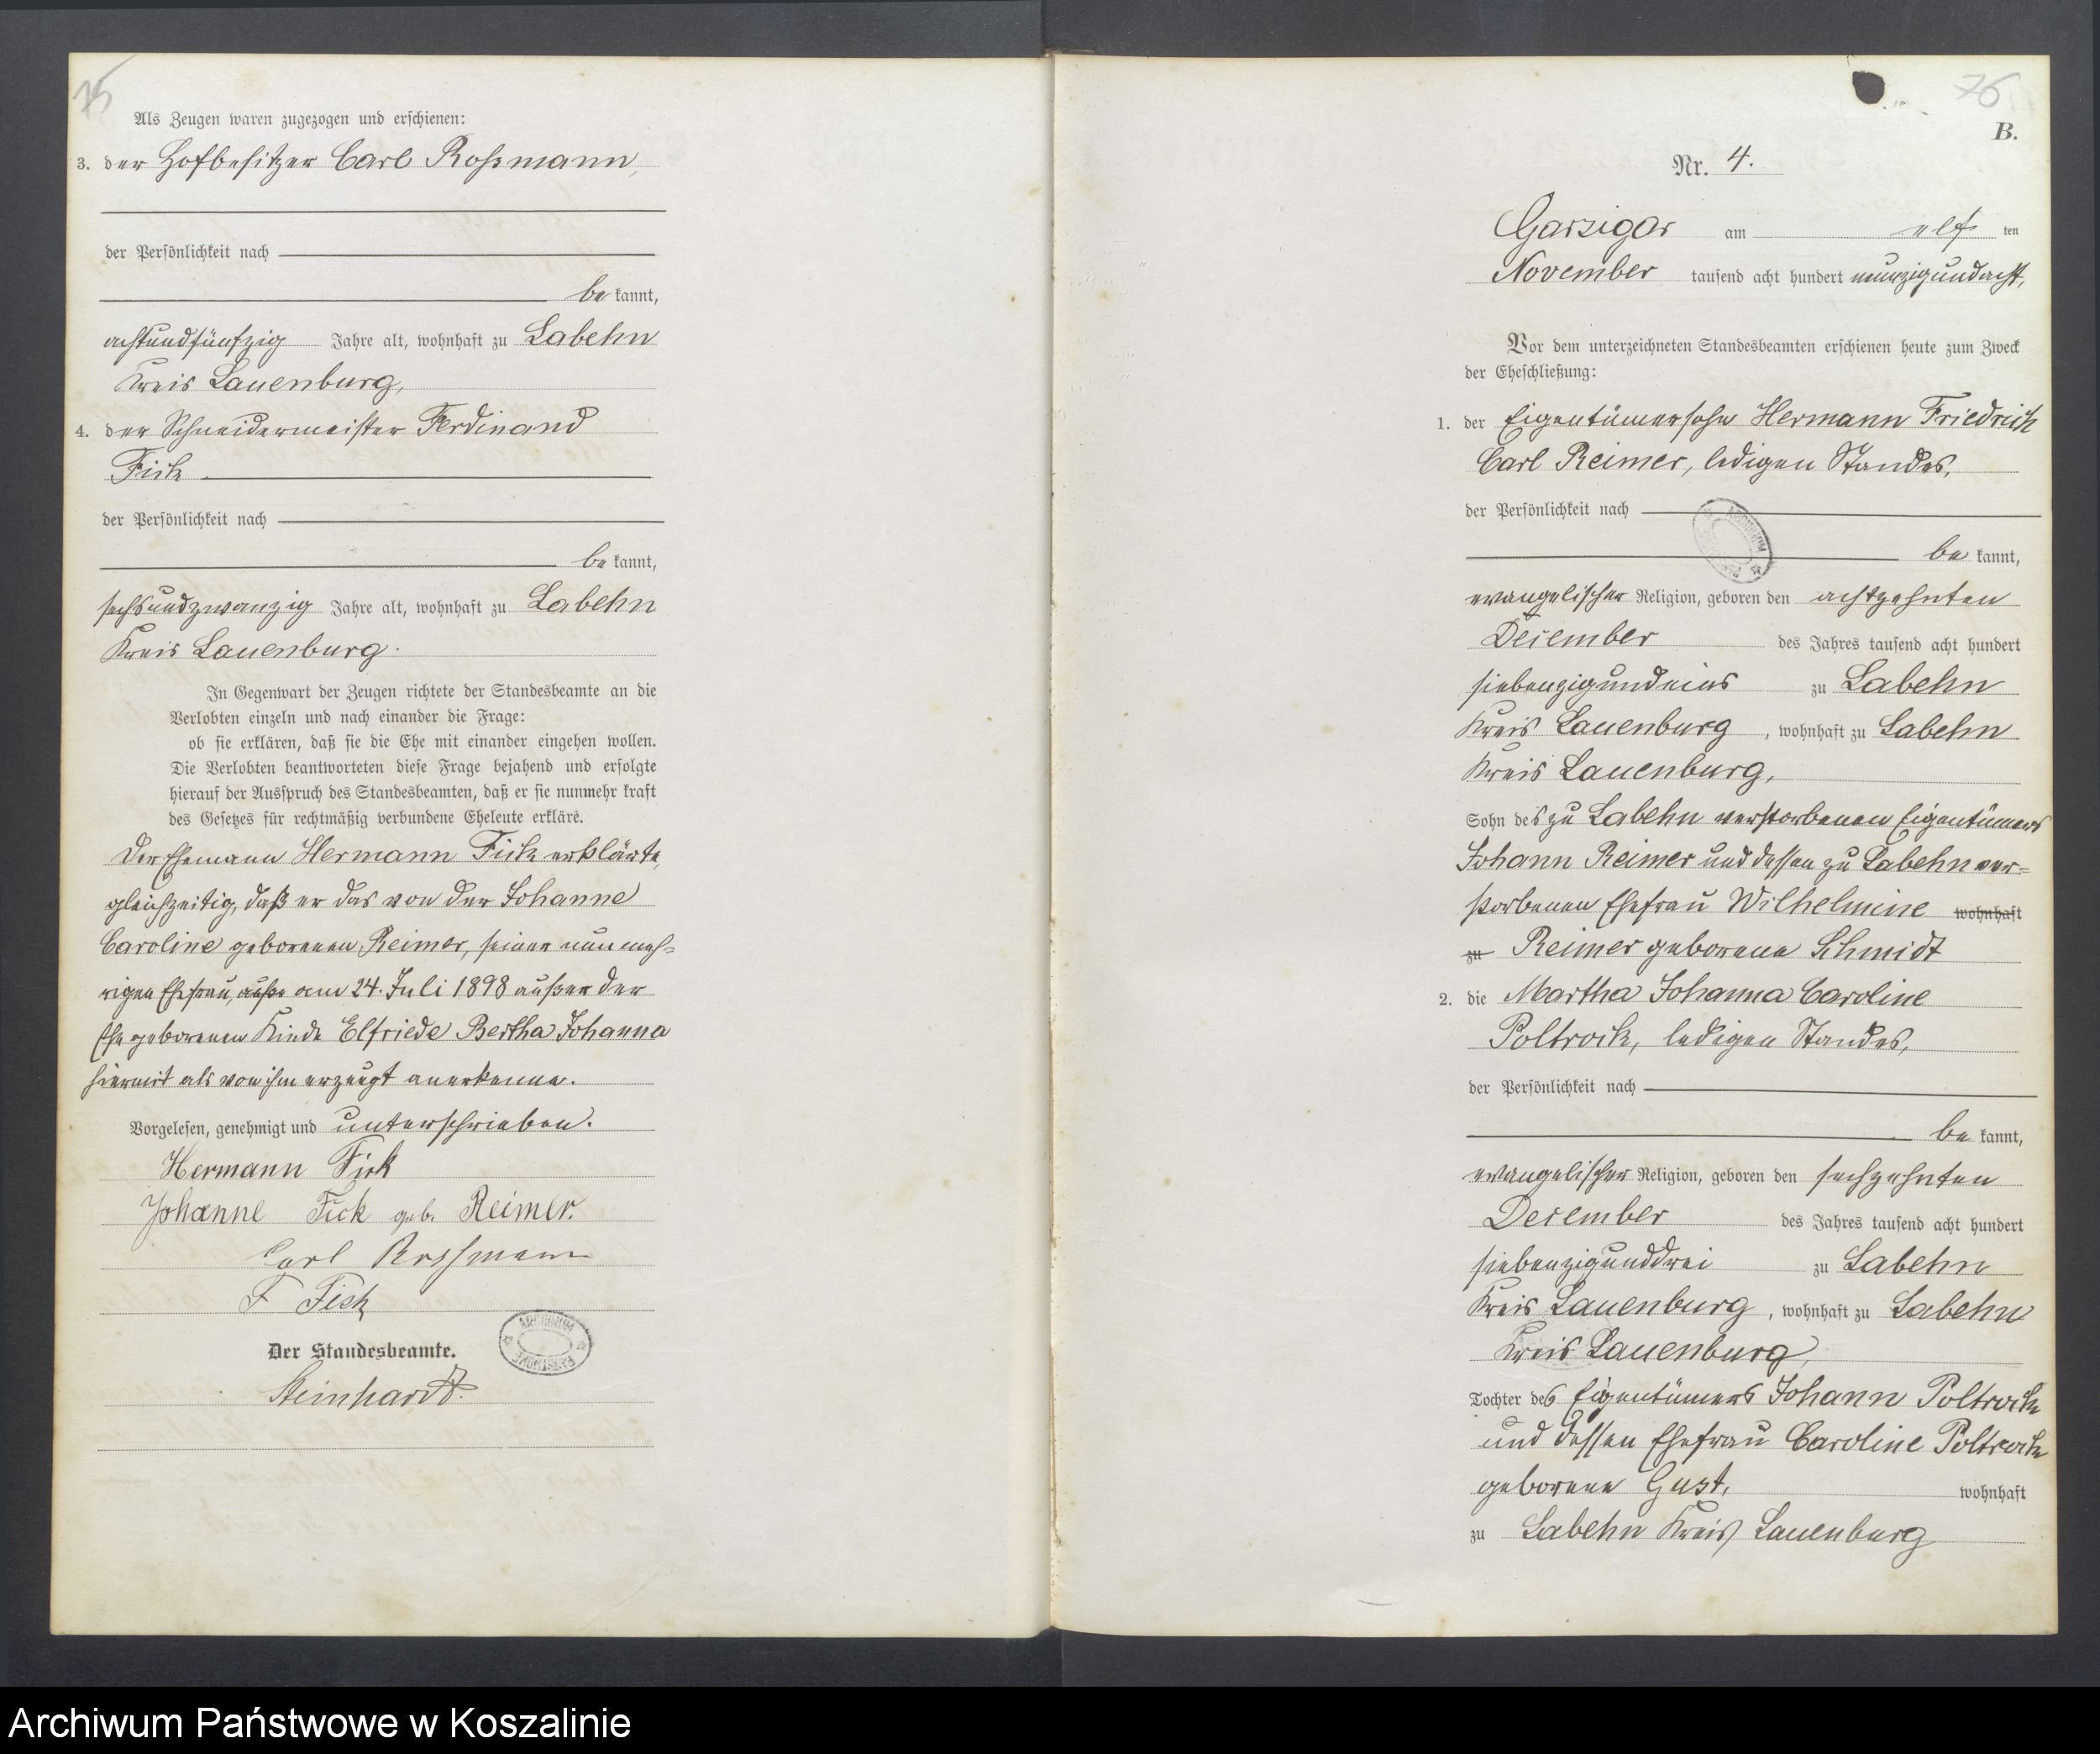 75
Als Zeugen waren zugezogen und erschienen:
3. der Hofbesitzer Carl Roßmann,
der Persönlichkeit nach
be kannt,
achtundfünfzig Jahre alt, wohnhaft zu Labehn
Kreis Lauenburg,
4. der Schneidermeister Ferdinand
Fick
der Persönlichkeit nach
be kannt,
sechsundzwanzig Jahre alt, wohnhaft zu Labehn
Kreis Lauenburg.
In Gegenwart der Zeugen richtete der Standesbeamte an die
Verlobten einzeln und nach einander die Frage:
ob sie erklären, daß sie die Ehe mit einander eingehen wollen.
Die Verlobten beantworteten diese Frage bejahend und erfolgte
hierauf der Ausspruch des Standesbeamten, daß er sie nunmehr kraft
des Gesetzes für rechtmäßig verbundene Eheleute erkläre.
Der Ehemann Hermann Fick erklärte,
gleichzeitig, daß er das von der Johanne
Caroline geborenen Reimer, seiner nunmeh-
rigen Ehefrau, auße am 24. Juli 1898 außer der
Ehe geborenen Kinde Elfriede Bertha Johanna
hiermit als von ihm erzeugt anerkenne.
Vorgelesen, genehmigt und unterschrieben.
Hermann Fick
Johanne Fick geb. Reimer.
Carl Rossmann
F Fick
Der Standesbeamte.
Steinhardt.
ARCHIWUM
76
B.
Nr. 4.
Garzigar am elf ten
November tausend acht hundert neunzigundacht,
Vor dem unterzeichneten Standesbeamten erschienen heute zum Zweck
der Eheschließung:
1. der Eigentümersohn Hermann Friedrich
Carl Reimer, ledigen Standes,
der Persönlichkeit nach
ARCHIWUM
be kannt,
evangelischer Religion, geboren den achtzehnten
Dezember des Jahres tausend acht hundert
siebenzigundeins zu Labehn
Kreis Lauenburg, wohnhaft zu Labehn
Kreis Lauenburg,
Sohn des zu Labehn verstorbenen Eigentümers
Johann Reimer und dessen zu Labehn ver-
storbenen Ehefrau Wilhelmine wohnhaft
zu Reimer geborene Schmidt
2. die Martha Johanna Caroline
Poltrock, ledigen Standes,
der Persönlichkeit nach
be kannt,
evangelischer Religion, geboren den sechzehnten
Dezember des Jahres tausend acht hundert
siebenzigunddrei zu Labehn
Kreis Lauenburg, wohnhaft zu Labehn
Kreis Lauenburg,
Tochter des Eigentümers Johann Poltrock
und dessen Ehefrau Caroline Poltrock
geborene Gust, wohnhaft
zu Labehn Kreis Lauenburg
Archiwum Państwowe w Koszalinie